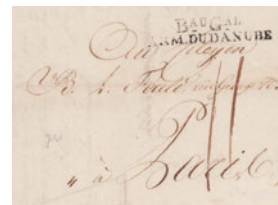 BAU GAL
ARM.DU DANUBE
Au Citoyen
B. L. Fould
" à Paris